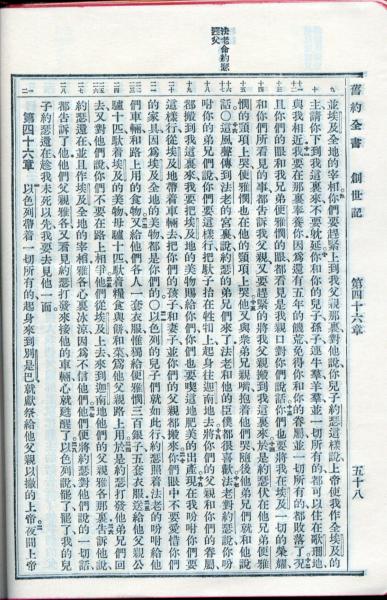 法老命約瑟
迎父
舊約全書 創世記 第四十六章 五十八
並埃及全地的宰相你們要趕緊上到我父親那裏對他說你兒子約瑟這樣說上帝使我作全埃及的
主請你下到我這裏來不要耽延你和你的兒子孫子連牛羣羊羣並一切所有的都可以住在歌珊地
與我相近我要在那裏奉養你因爲還有五年的饑荒免得你和你的眷屬並一切所有的都敗落了況
且你們的眼和我兄弟便雅憫的眼都看見是我親口對你們說話你們也要將我在埃及一切的榮耀
和你們所看見的事都告訴我父親又要趕緊的將我父親搬到我這裏來於是約瑟伏在他兄弟便雅
憫的頸項上哭便雅憫也在他的頸項上哭他又與衆弟兄親嘴抱着他們哭隨後他弟兄們就和他說
話○這風聲傳到法老的宮裏說約瑟的弟兄們來了法老和他的臣僕都很喜歡法老對約瑟說你吩
咐你的弟兄們說你們要這樣行把馱子抬在牲口上起身往迦南地去將你們的父親和你們的眷屬
都搬到我這裏來我要把埃及地的美物賜給你們你們也要喫這地肥美的出產現在我吩咐你們要
這樣行從埃及地帶着車輛去把你們的孩子和妻子並你們的父親都搬來你們眼中不要愛惜你們
的家具因爲埃及全地的美物都是你們的以色列的兒子們就如此行約瑟照着法老的吩咐給他
們車輛和路上用的食物又給他們各人一套衣服惟獨給便雅憫三百銀子五套衣服送給他父親公
驢十匹馱着埃及的美物母驢十匹馱着糧食與餅和菜爲他父親路上用於是約瑟打發他弟兄們回
去又對他們說你們不要在路上相爭他們從埃及上去來到迦南地他們的父親雅各那裏告訴他說
約瑟還在並且作埃及全地的宰相雅各心裏冰涼因爲不信他們他們便將約瑟對他們說的一切話
都告訴了他他們父親雅各又看見約瑟打發來接他的車輛心就甦醒了以色列說罷了罷了我的兒
子約瑟還在趁我未死以先我要去見他一面
第四十六章 以色列帶着一切所有的起身來到別是巴就獻祭給他父親以撒的上帝夜間上帝